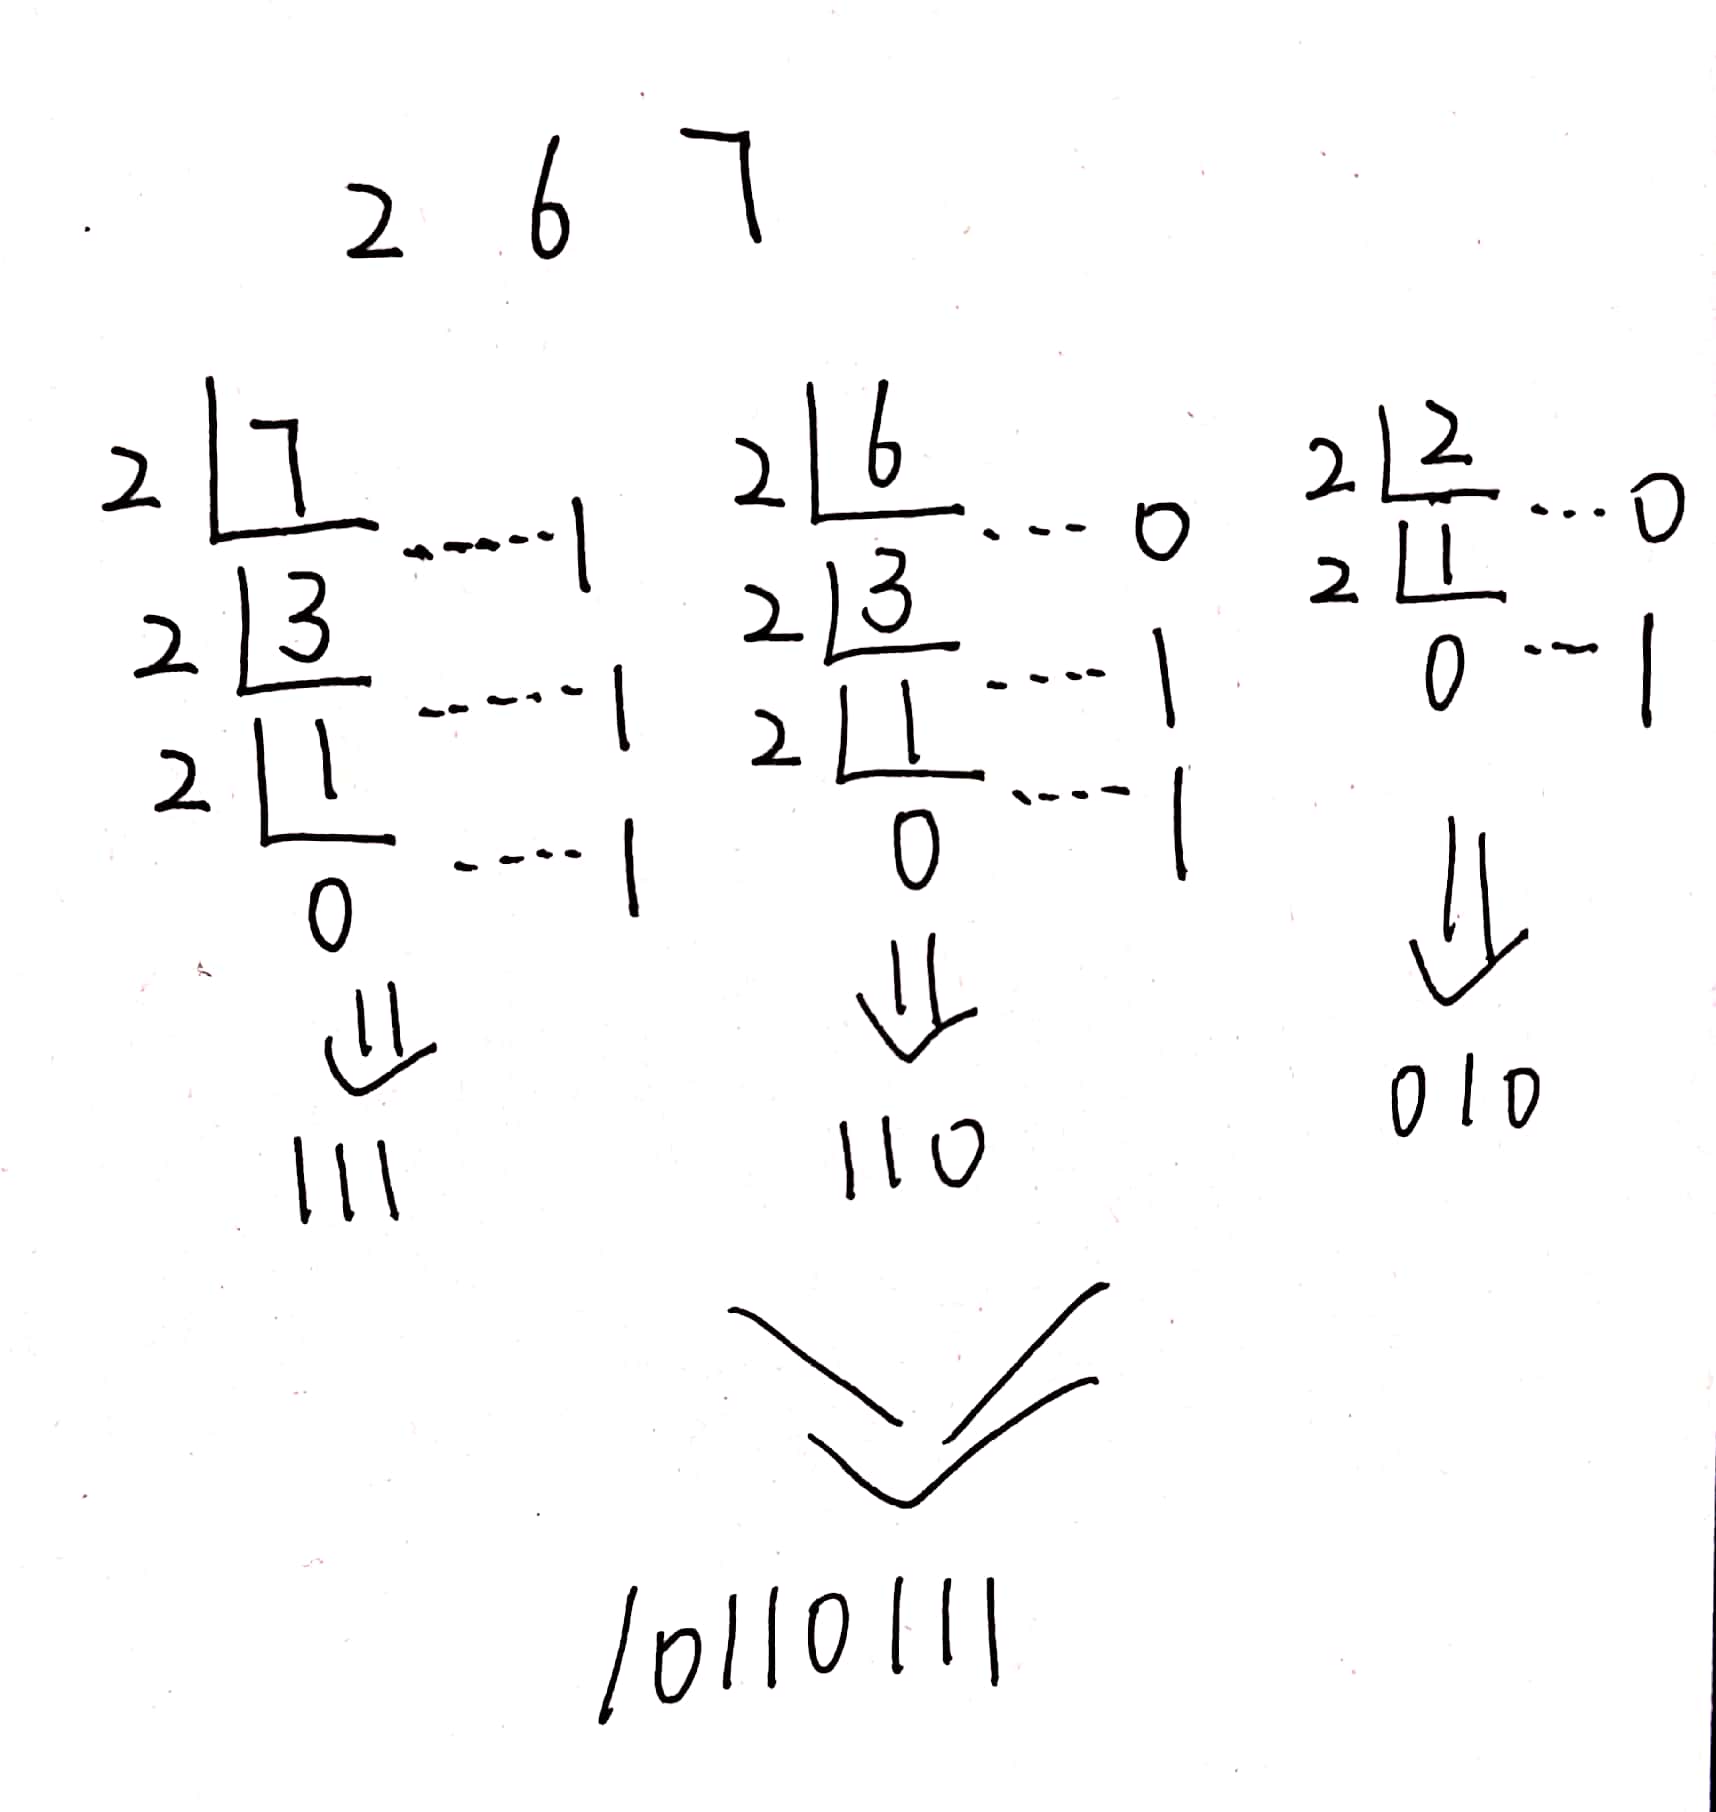 2 6 7
2 7 ......1
2 3 ......1
2 1 ....1
0
111
2 6 ....0
2 3 ....1
2 1 ....1
0
110
2 2 ...0
2 1
0 ...1
010
10110111